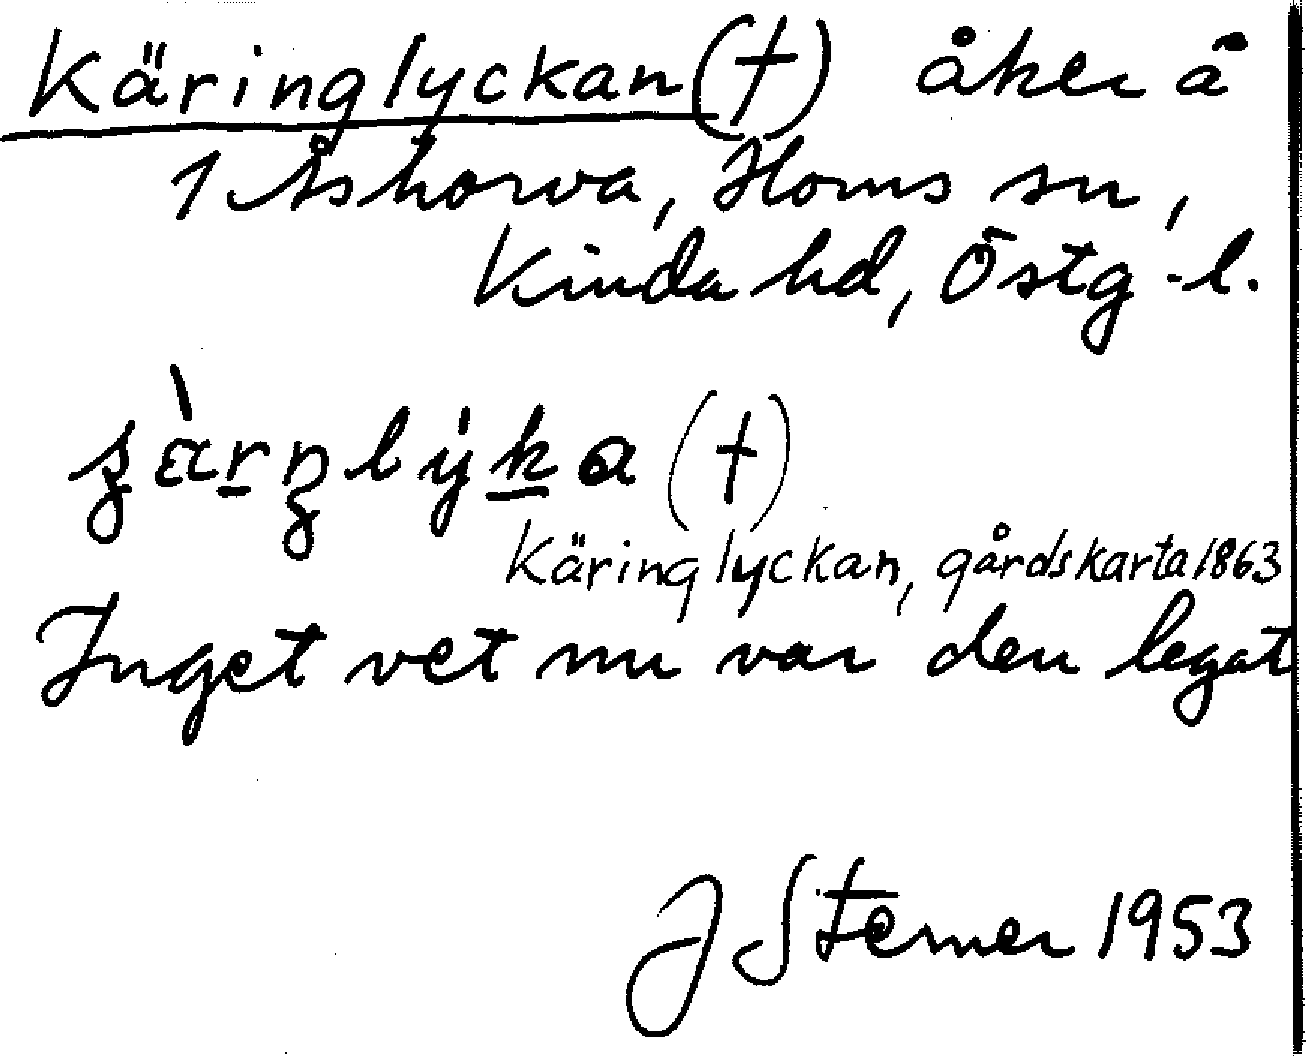 Käringlyckan (†) åker å
1 Åshorva, Horns sn,
Kinda hd, Östg-l.
(†)
Käringlyckan, gårdskarta 1863
Inget vet nu var den legat
J Sterner 1953